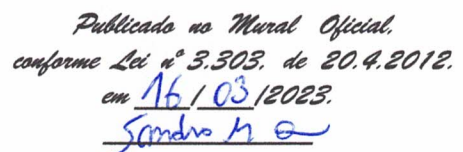 Publicado no Mural Oficial,
conforme Lei nº 3.303, de 20.4.2012.
em 16 / 03 /2023.
Sandro M